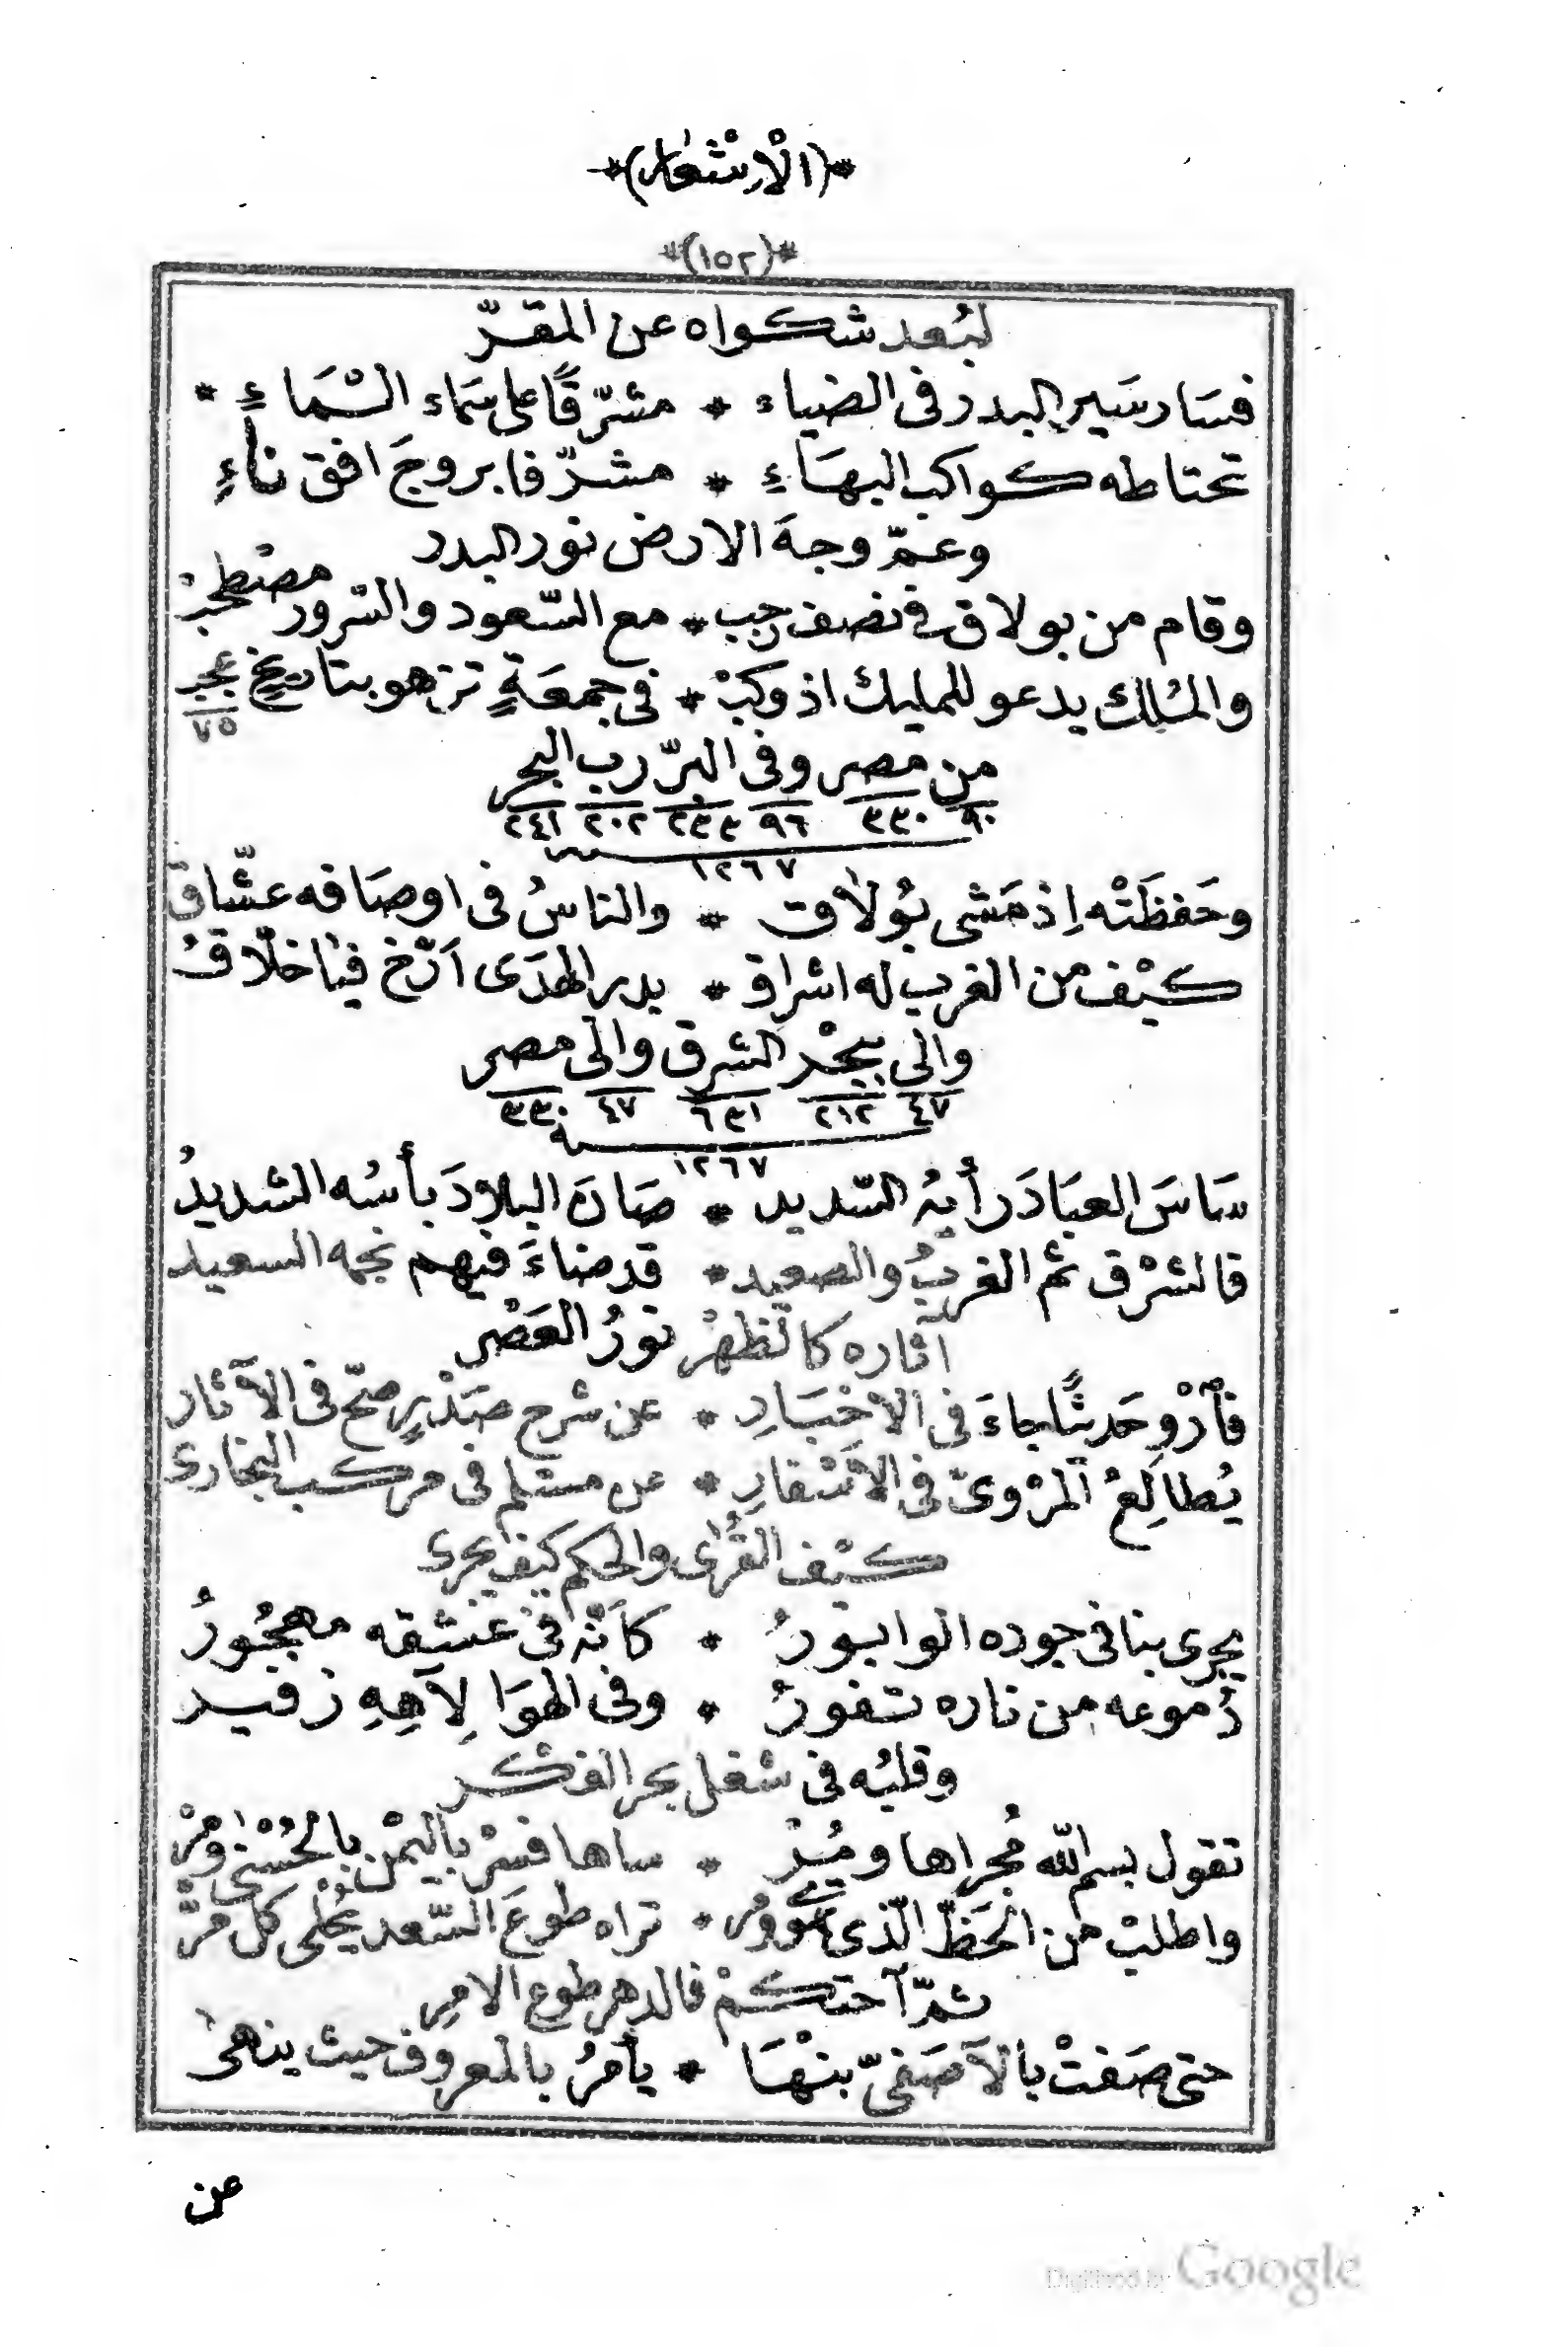 *(الْاِشْعَار)*
*(١٥٢)*
لبُعد شكواه عن المقرّ
فسَار سَير البدر فى الضياء * مشرّقًا على سَماء السَّمَاءِ *
تحتاطه كواكب البهَاءِ * مشرّفا بروجَ افق ناءٍ
وعمّ وجهَ الارض نور البدر
وقام من بولاق فى نصف رجب * مع السّعود والسّرور مصْطحبْ
والمُلك يدعو للمليك اذ وكبْ * فى جمعَةٍ تزهو بتاريخ عجبْ
٧٥
من مصر وفى البرّ رب البحر
٩٠ ٣٣٠ ٩٦ ٢٣٣ ٢٠٢ ٢٤١
١٢٦٧
وحَفظَتْه اِذ مَشى بُولاق * والناسُ فى اوصَافه عشّاق
كيْف من الغرب له اشراق * بدر الهدَى اَرّخ فيا خلّاقُ
والى بيجْدِ الشرق والى مصر
٤٧ ٢١٢ ٦٣١ ٤٧ ٣٣٠
١٢٦٧
سَاسَ العبَادَ رأيهُ السّديد * صَانَ البلادَ بأسُه الشديدُ
فالشرْق ثم الغربُ والصعيد * قد ضاءَ فيهم نجمه السعيد
آثاره كالظهْر نورُ العَصْر
فأرْوِ حَديثًا جاءَ فى الاخبَارِ * عن شرح صَدْرٍ صحّ فى الآثار
يُطالِعُ المرْوىّ فى الاَسْفارِ * عن مسلم فى مركب البخارى
كيْف القُرٰى والحكم كيف يجرى
يجرى بنا فى جوده الوابورُ * كأنّه فى عشقه مهجُورُ
دُموعه من ناره تفورُ * وفى الهوَا لِآهِهِ زفير
وقلبُه فى شغل بحر الفكْر
تقول بسم اللّه مُجراها ومُرْ * ساها فسِرْ باليُمْن بالحُسْنٰى ومُرْ
واطلبْ من الحَظّ الّذى * تراه طوعَ السّعد يُحْلى كل مرّ
ثمّ احتكمْ فالدهر طوع الامرِ
حتى صَفتْ بالآصَفىّ بنْهَا * يأمرُ بالمعروف حيث ينهىٰ
عن
Digitized by Google